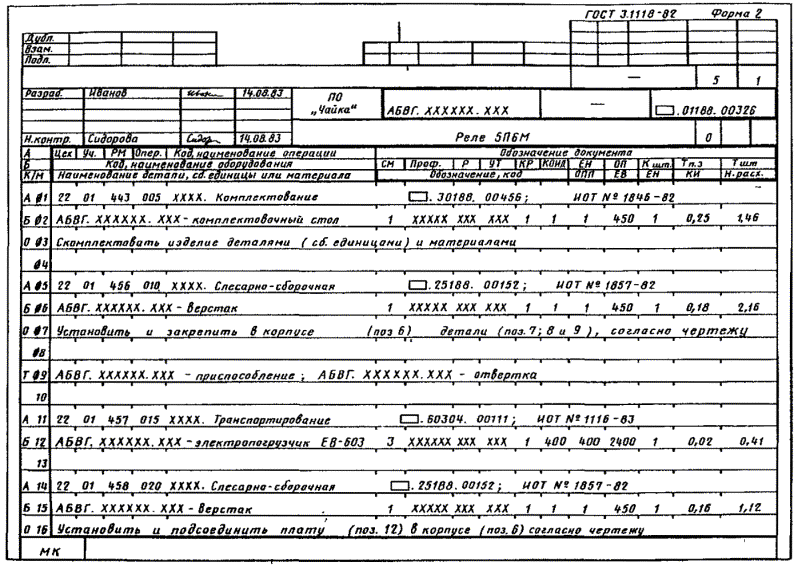 ГОСТ 3.1118-82 Форма 2
Дубл.
Взам.
Подл.
— 5 1
Разраб. Иванов 14.08.83 ПО „Чайка“ АБВГ. XXXXXX. XXX — .01188.00326
Н.контр. Сидорова 14.08.83 Реле 5П6М 0
А Цех Уч. РМ Опер. Код, наименование операции Обозначение документа
Б Код, наименование оборудования СМ Проф. Р УТ КР КОИД ЕН ОП К шт. Тп.з Т шт
К/М Наименование детали, сб. единицы или материала Обозначение, код ОПП ЕВ ЕН КИ Н.расх.
А 01 22 01 443 005 XXXX. Комплектование .30188. 00456; ИОТ № 1846-82
Б 02 АБВГ. XXXXXX. XXX-комплектовочный стол 1 XXXXX XXX XXX 1 1 1 450 1 0,25 1,46
О 03 Скомплектовать изделие деталями (сб. единицами) и материалами
04
А 05 22 01 456 010 XXXX. Слесарно-сборочная .25188. 00152; ИОТ № 1857-82
Б 06 АБВГ. XXXXXX. XXX - Верстак 1 XXXXX XXX XXX 1 1 1 450 1 0,18 2,16
О 07 Установить и закрепить в корпусе (поз 6) детали (поз. 7; 8 и 9), согласно чертежу
08
Т 09 АБВГ. XXXXXX.XXX - приспособление; АБВГ. XXXXXX.XXX - отвертка
10
А 11 22 01 457 015 XXXX. Транспортирование .60304. 00111; ИОТ № 1116-83
Б 12 АБВГ. XXXXXX. XXX-электропогрузчик ЕВ-603 3 XXXXXX XXX XXX 1 400 400 2400 1 0,02 0,41
13
А 14 22 01 458 020 XXXX. Слесарно-сборочная .25188.00152; ИОТ № 1857-82
Б 15 АБВГ. XXXXXX. XXX-Верстак 1 XXXXX XXX XXX 1 1 1 450 1 0,16 1,12
О 16 Установить и подсоединить плату (поз. 12) в корпусе (поз. 6) согласно чертежу
МК